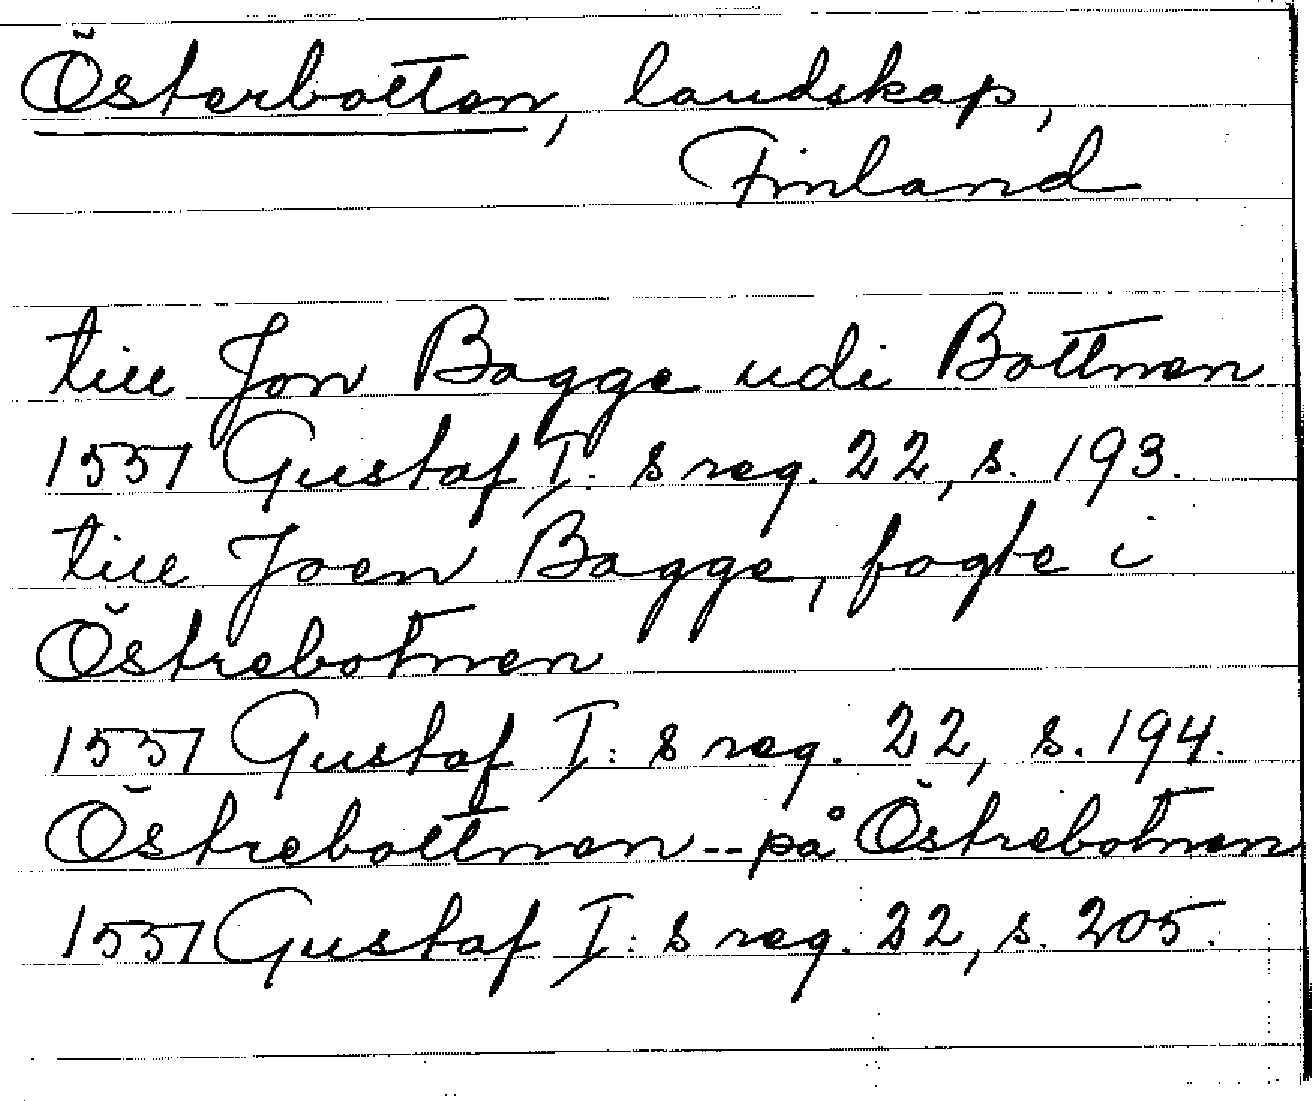 Österbotten, landskap,
Finland
till Jon Bagge udi Bottnen
1551 Gustaf I:s reg. 22, s. 193.
till Joen Bagge, fogte i
Östrebotnen
1551 Gustaf I:s reg. 22, s. 194.
Östrebottnen -- på Östrebotnen
1551 Gustaf I:s reg. 22, s. 205.